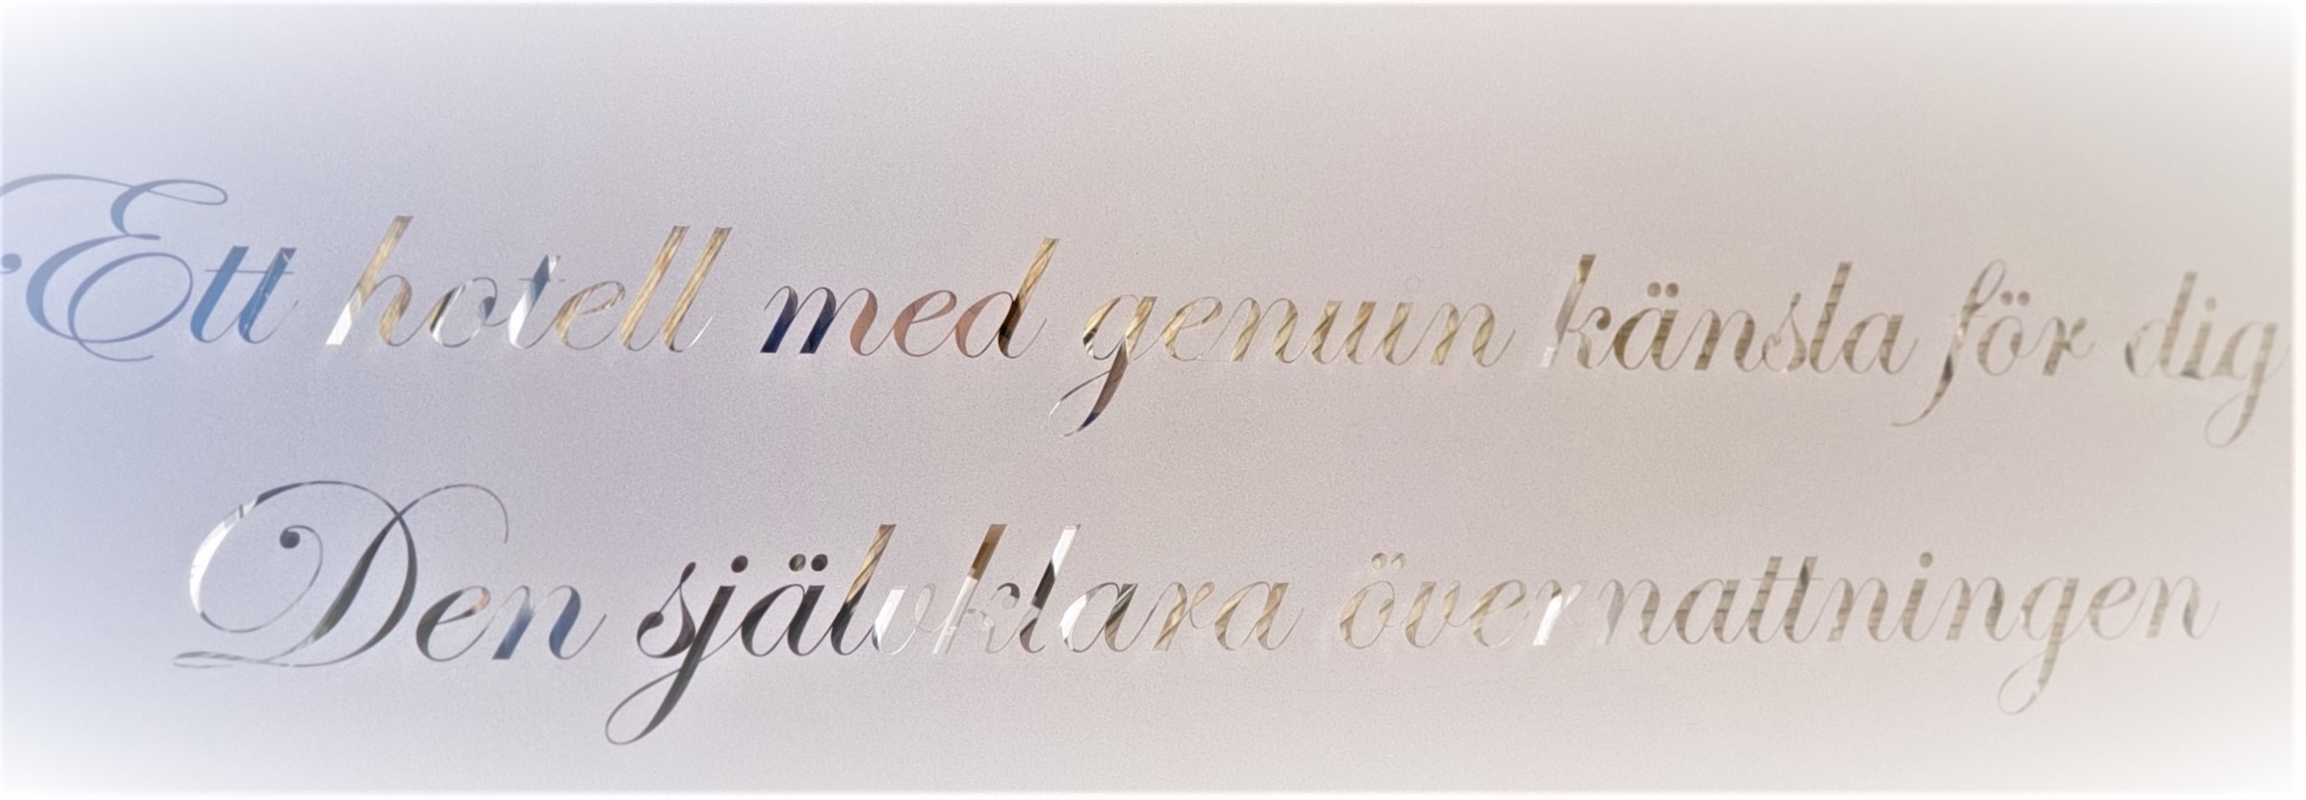 Ett hotell med genuin känsla för dig
Den självklara övernattningen